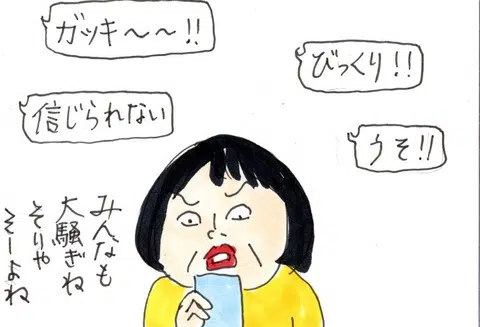 ガッキ〜〜!!
びっくり!!
信じられない
うそ!!
みんなも
大騒ぎね
そりや
そーよね